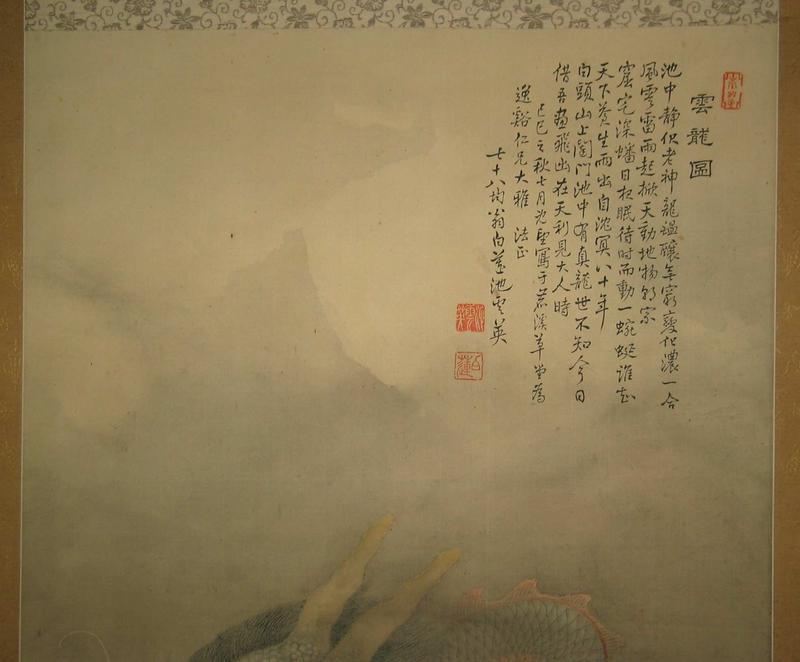 雲龍圖
池中静伏老神龍醞釀年窮變化濃一合
風雲雷雨起掀天動地物
窟宅深蟠日夜眠待時而動一蜿蜒誰知
天下蒼生雨出自沈冥八十年
白頭山上闥門池中有真龍世不知今日
借吾畫飛出在天利見大人時
己巳之秋七月 望寫于若溪草堂為
逸谿仁兄大雅 法正
七十八 翁白蓮池雲英
白蓮